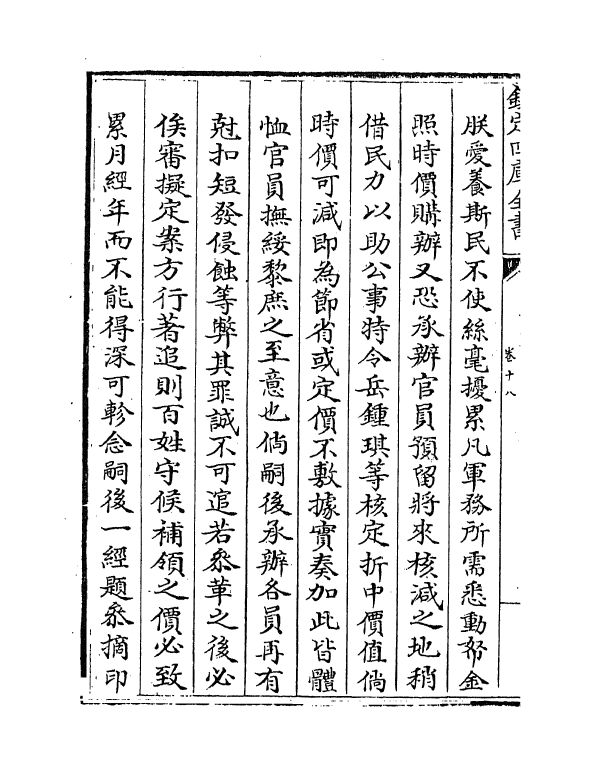 欽定四庫全書
卷十八
朕愛養斯民不使絲毫擾累凡軍務所需悉動帑金
照時價購辦又恐承辦官員預留將來核減之地稍
借民力以助公事特令岳鍾琪等核定折中價值倘
時價可減即為節省或定價不敷據實奏加此皆體
恤官員撫綏黎庶之至意也倘嗣後承辦各員再有
尅扣短發侵蝕等弊其罪誠不可逭若叅革之後必
俟審擬定案方行著追則百姓守候補領之價必致
累月經年而不能得深可軫念嗣後一經題叅摘印